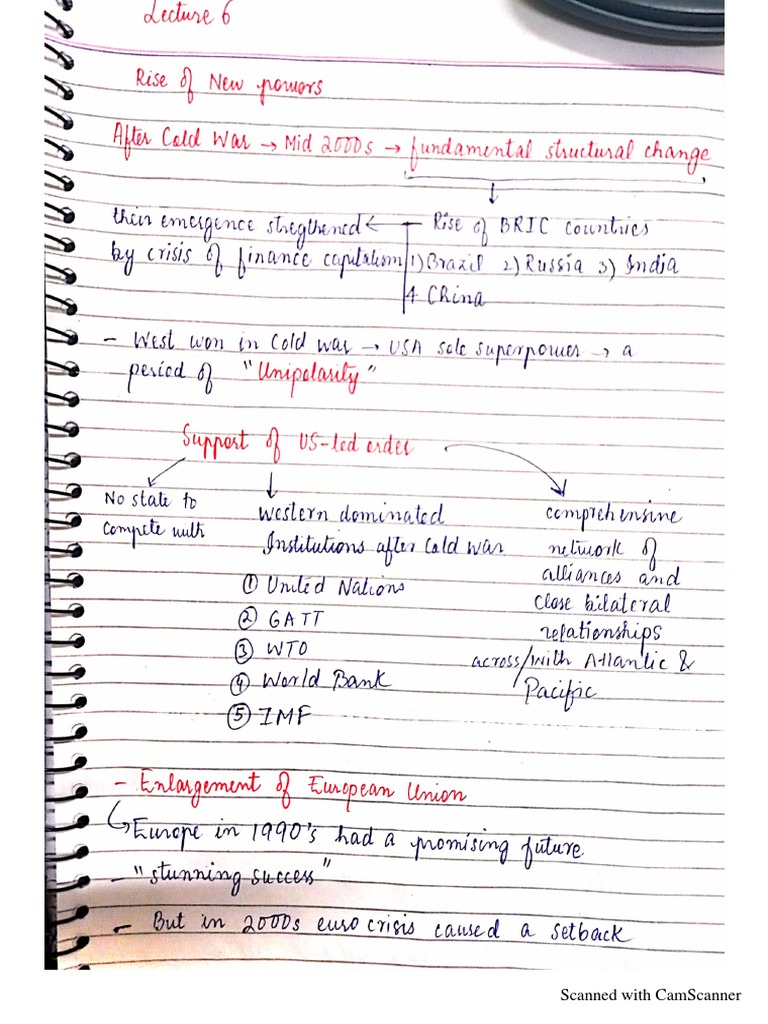 Lecture 6
Rise of New powers
After Cold War → Mid 2000s → fundamental structural change
their emergence stregthened ← Rise of BRIC countries
by crisis of finance capitalism 1) Brazil 2) Russia 3) India
4 China
- West won in Cold war → USA sole superpower → a
period of "Unipolarity"
Support of US-led order
No state to
compete with
Western dominated
Institutions after Cold war
① United Nations
② GATT
③ WTO
④ World Bank
⑤ IMF
comprehensine
network of
alliances and
close bilateral
relationships
across/with Atlantic &
Pacific
- Enlargement of European Union
Europe in 1990's had a promising future
- "stunning success"
- But in 2000s euro crisis caused a setback
Scanned with CamScanner